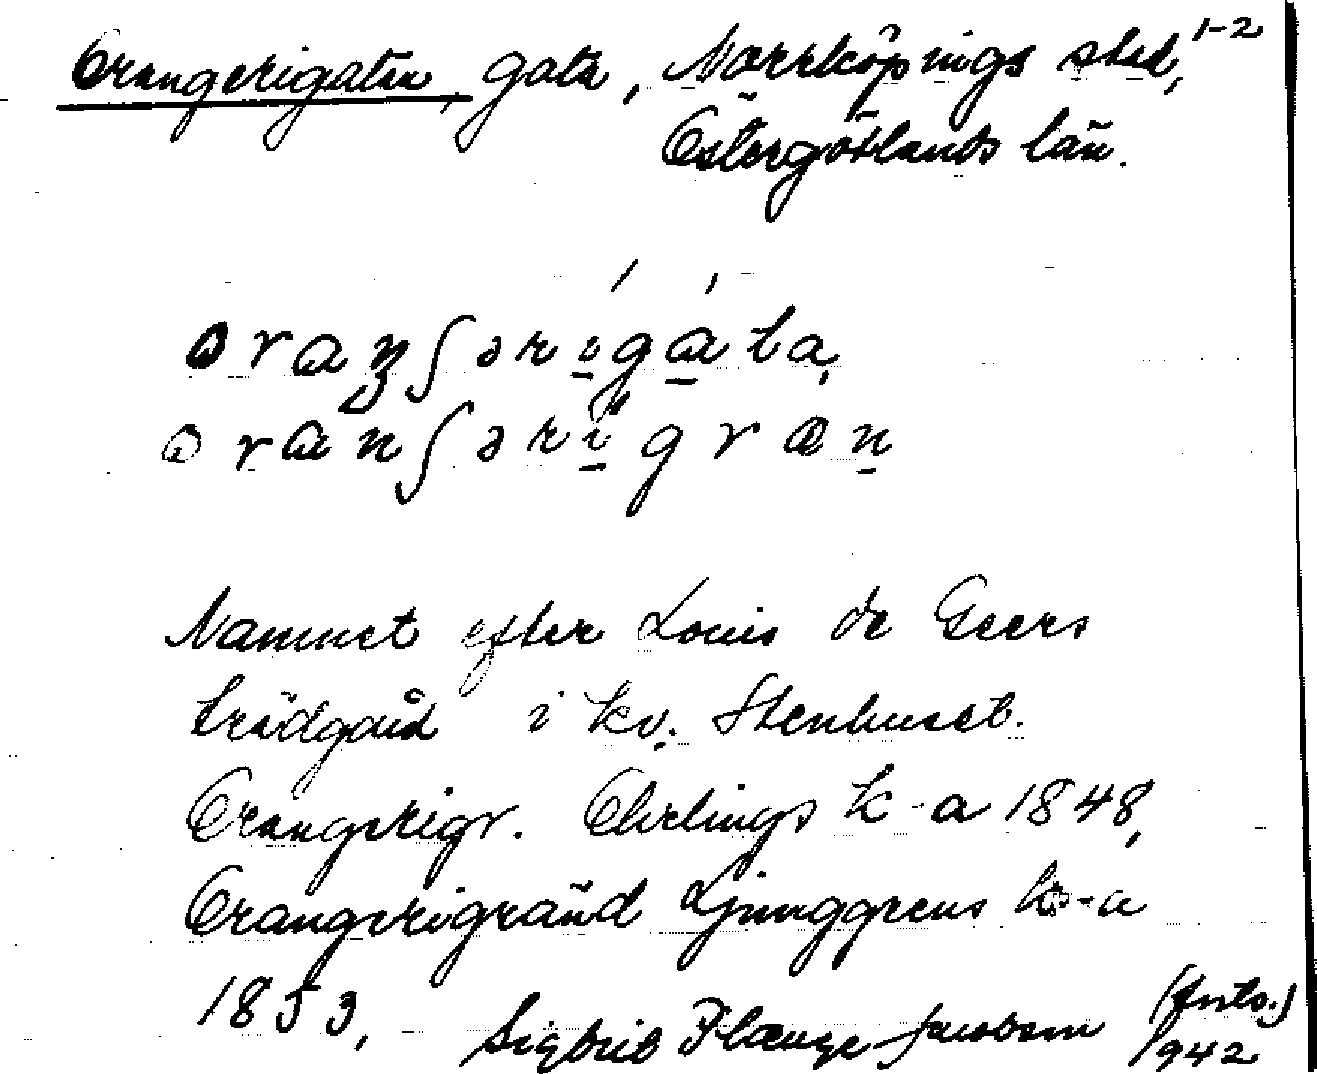 Orangerigatan, gata, Norrköpings stad, 1-2
Östergötlands län.
oraŋʃərigata,
oranʃərigræn
Namnet efter Louis de Geers
trädgård i kv. Stenhuset.
Orangerigr. Ehrlings k-a 1848,
Orangerigränd Ljunggrens k-a
1853,
Sigbrit Plænge Jacobson
1942